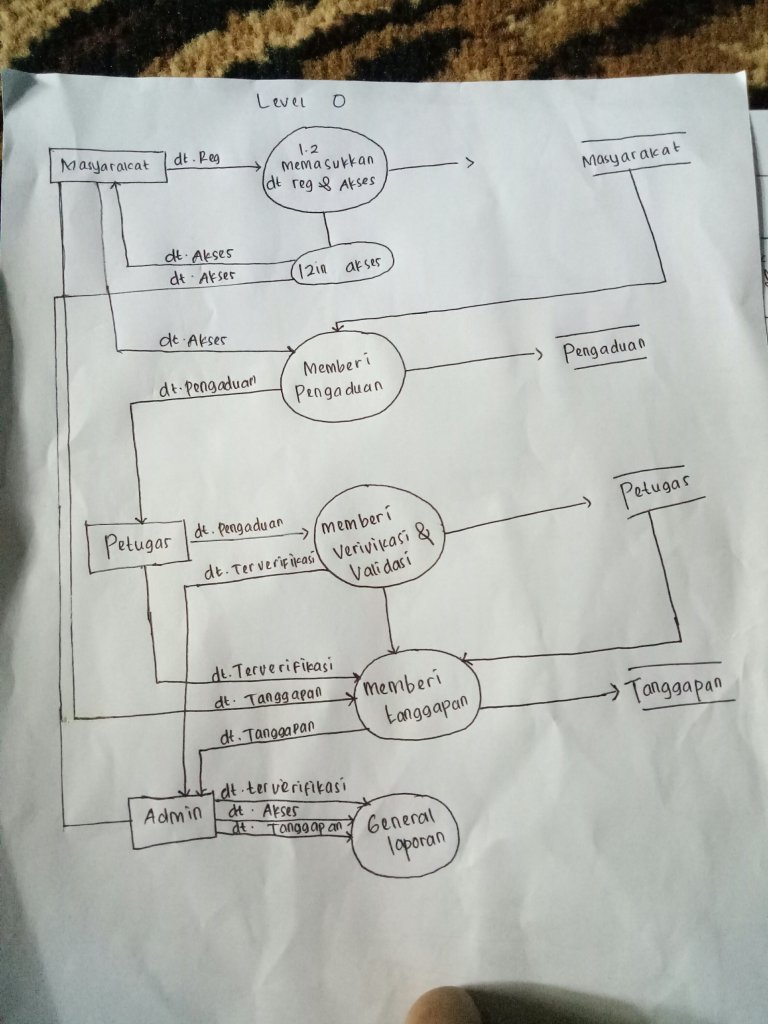 Level 0
Masyarakat
dt. Reg
1.2
Memasukkan
dt reg & Akses
Masyarakat
dt. Akses
dt. Akses
Izin akses
dt. Akses
Memberi
Pengaduan
Pengaduan
dt. pengaduan
Petugas
dt. Pengaduan
Memberi
Verivikasi &
Validasi
Petugas
dt. Terverifikasi
dt. Terverifikasi
dt. Tanggapan
Memberi
tanggapan
Tanggapan
dt. Tanggapan
Admin
dt. terverifikasi
dt. Akses
dt. Tanggapan
General
laporan